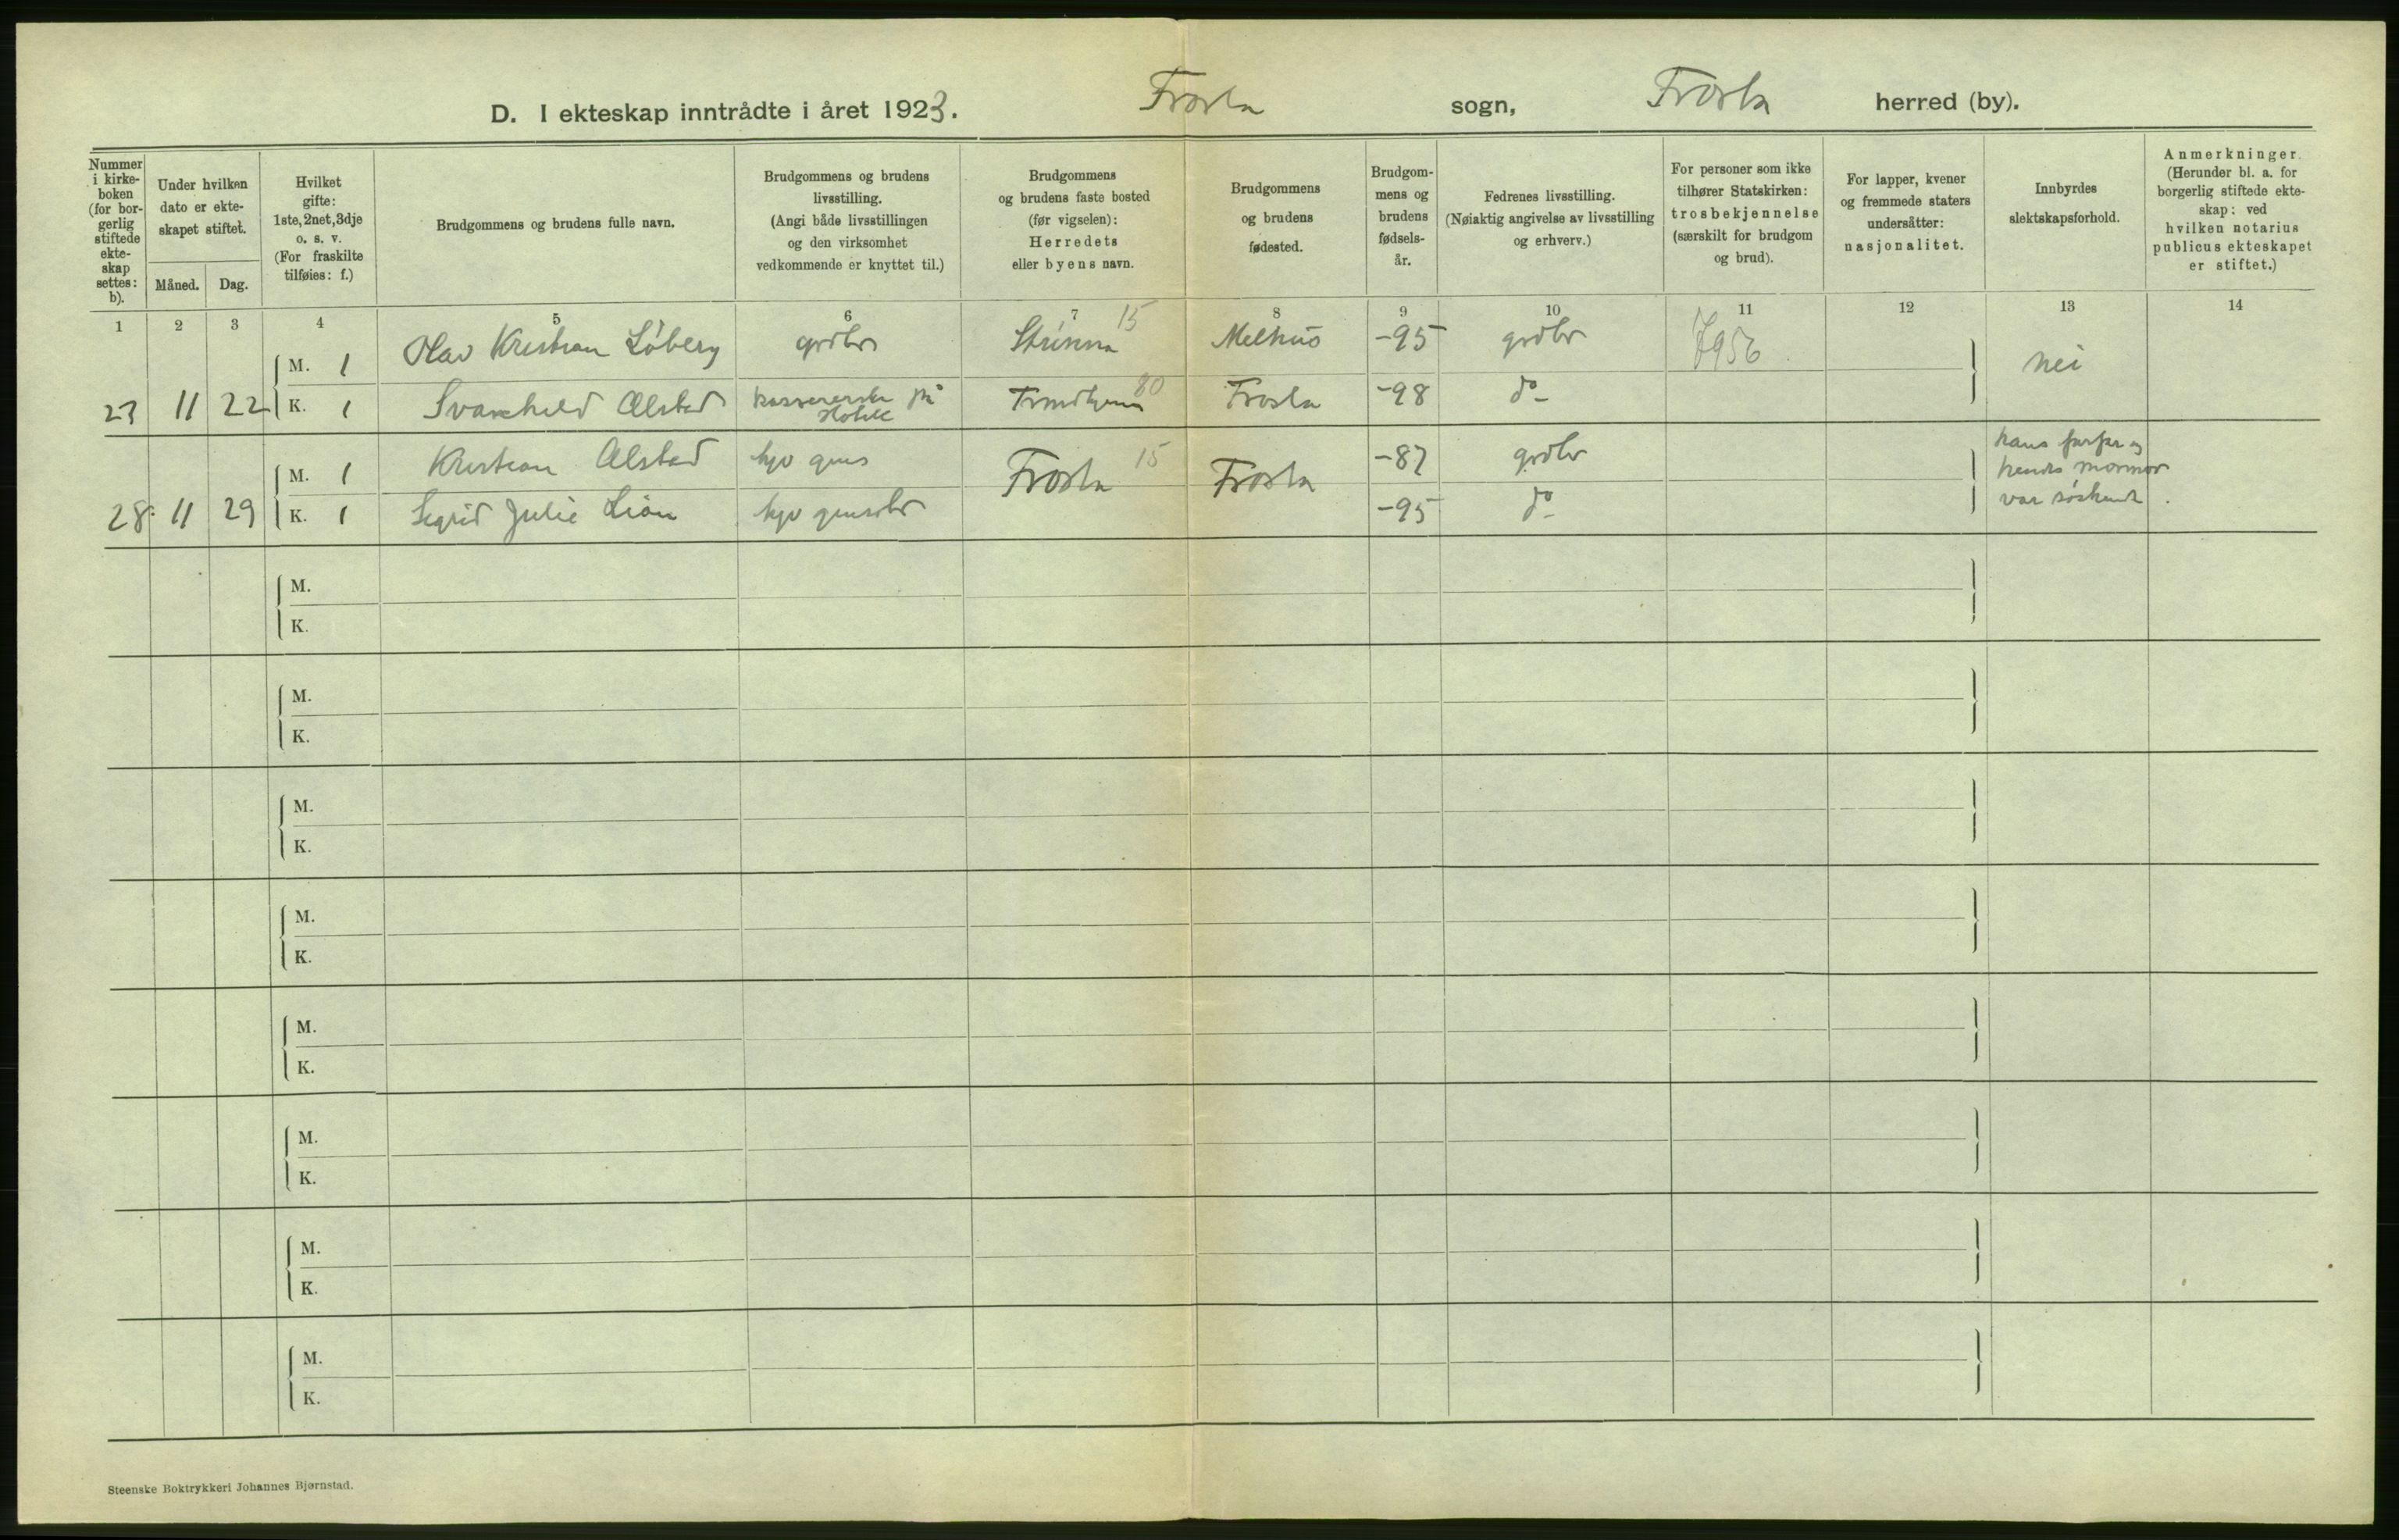 D. I ekteskap inntrådte i året 1923. Frosta sogn, Frosta herred (by).
Nummer i kirkeboken (for borgerlig stiftede ekteskap settes: b).
Under hvilken dato er ekteskapet stiftet.
Måned. Dag.
Hvilket gifte: 1ste, 2net, 3dje o. s. v. (For fraskilte tilføies: f.)
Brudgommens og brudens fulle navn.
Brudgommens og brudens livsstilling. (Angi både livsstillingen og den virksomhet vedkommende er knyttet til.)
Brudgommens og brudens faste bosted (før vigselen): Herredets eller byens navn.
Brudgommens og brudens fødested.
Brudgommens og brudens fødselsår.
Fedrenes livsstilling. (Nøiaktig angivelse av livsstilling og erhverv.)
For personer som ikke tilhører Statskirken: trosbekjennelse (særskilt for brudgom og brud).
For lapper, kvener og fremmede staters undersåtter: nasjonalitet.
Innbyrdes slektskapsforhold.
Anmerkninger. (Herunder bl. a. for borgerlig stiftede ekteskap: ved hvilken notarius publicus ekteskapet er stiftet.)
1 2 3 4 5 6 7 8 9 10 11 12 13 14
M. 1 Olav Kristian Løberg grdbr Strinna 15 Melhus -95 grdbr 7956 nei
23 11 22 K. 1 Svanhild Alstad kassererske på Hotell Trondhjem 80 Frosta -98 do
M. 1 Kristian Alstad hjv gms Frosta 15 Frosta -87 grdbr hans farfar og
hendes mormor
28 11 29 K. 1 Sigrid Julie Lian hjv -95 do var søskende.
M.
K.
M.
K.
M.
K.
M.
K.
M.
K.
M.
K.
M.
K.
M.
K.
Steenske Boktrykkeri Johannes Bjørnstad.